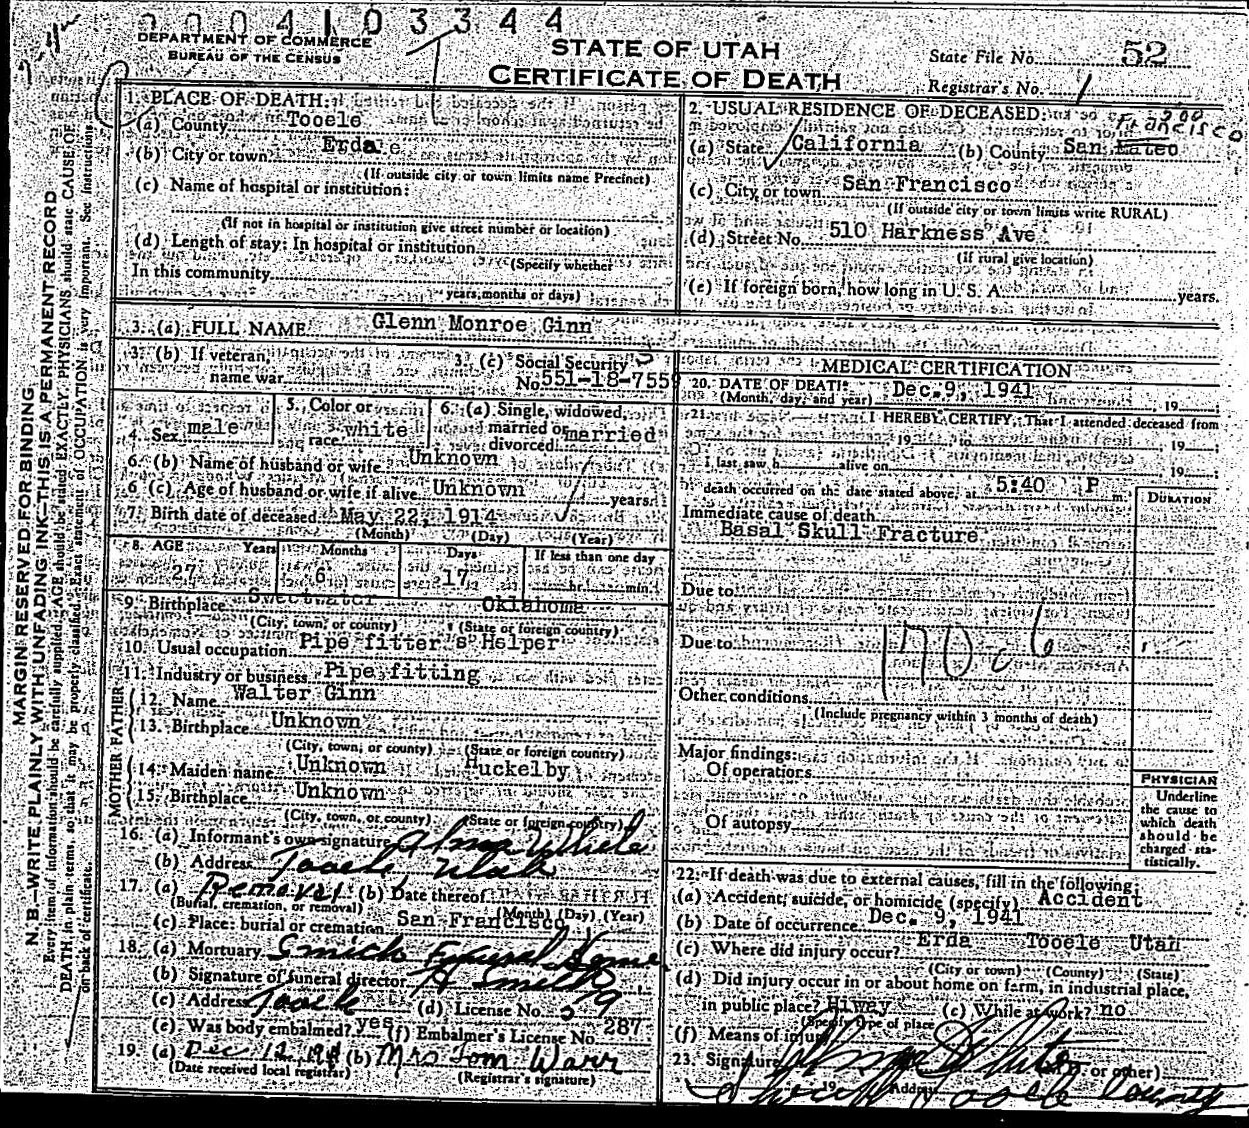 000410 3344
DEPARTMENT OF COMMERCE
BUREAU OF THE CENSUS
STATE OF UTAH
CERTIFICATE OF DEATH
State File No. 52
Registrar's No. 1
MARGIN RESERVED FOR BINDING
N. B.—WRITE PLAINLY WITH UNFADING INK—THIS IS A PERMANENT RECORD
Every item of information should be carefully supplied. AGE should be stated EXACTLY. PHYSICIANS should state CAUSE OF
DEATH in plain terms, so that it may be properly classified. Exact statement of OCCUPATION is very important. See instructions
on back of certificate.
1. PLACE OF DEATH:
(a) County Tooele
(b) City or town Erda
(If outside city or town limits name Precinct)
(c) Name of hospital or institution:
(If not in hospital or institution give street number or location)
(d) Length of stay: In hospital or institution
(Specify whether
In this community
years, months or days)
2. USUAL RESIDENCE OF DECEASED:
Francisco
(a) State California (b) County San Mateo
(c) City or town San Francisco
(If outside city or town limits write RURAL)
(d) Street No. 510 Harkness Ave
(If rural give location)
(e) If foreign born, how long in U. S. A. years.
3. (a) FULL NAME Glenn Monroe Ginn
3. (b) If veteran, name war
3. (c) Social Security No. 551-18-7559
4. Sex male
5. Color or race white
6. (a) Single, widowed, married or divorced married
6. (b) Name of husband or wife Unknown
6 (c) Age of husband or wife if alive Unknown years.
7. Birth date of deceased May 22, 1914
(Month) (Day) (Year)
8. AGE Years Months Days If less than one day
27 6 17 hr. min.
9. Birthplace Sweetwater Oklahoma
(City, town, or county) (State or foreign country)
10. Usual occupation Pipe fitter's Helper
11. Industry or business Pipe fitting
FATHER
12. Name Walter Ginn
13. Birthplace Unknown
(City, town, or county) (State or foreign country)
MOTHER
14. Maiden name Unknown Huckelby
15. Birthplace Unknown
(City, town, or county) (State or foreign country)
16. (a) Informant's own signature Alma White
(b) Address Tooele Utah
17. (a) Removal (b) Date thereof
(Burial, cremation, or removal) (Month) (Day) (Year)
(c) Place: burial or cremation San Francisco
18. (a) Mortuary Smith Funeral Home
(b) Signature of funeral director A Smith
(c) Address Tooele (d) License No. 59
(e) Was body embalmed? yes (f) Embalmer's License No. 287
19. (a) Dec 12 1941 (b) Mrs Tom Warr
(Date received local registrar) (Registrar's signature)
MEDICAL CERTIFICATION
20. DATE OF DEATH: Dec. 9, 1941
(Month, day, and year) , 19
21. I HEREBY CERTIFY, That I attended deceased from
19 to 19
I last saw h alive on 19
death occurred on the date stated above, at 5:40 P m.
DURATION
Immediate cause of death
Basal Skull Fracture
Due to
Due to
170-6
Other conditions
(Include pregnancy within 3 months of death)
Major findings:
Of operations
Of autopsy
PHYSICIAN
Underline
the cause to
which death
should be
charged sta-
tistically.
22. If death was due to external causes, fill in the following:
(a) Accident, suicide, or homicide (specify) Accident
(b) Date of occurrence Dec. 9, 1941
(c) Where did injury occur? Erda Tooele Utah
(City or town) (County) (State)
(d) Did injury occur in or about home on farm, in industrial place,
in public place? Hiway (e) While at work? no
(Specify type of place
(f) Means of injury
23. Signature Alma White or other)
19 Address
Sheriff Tooele County